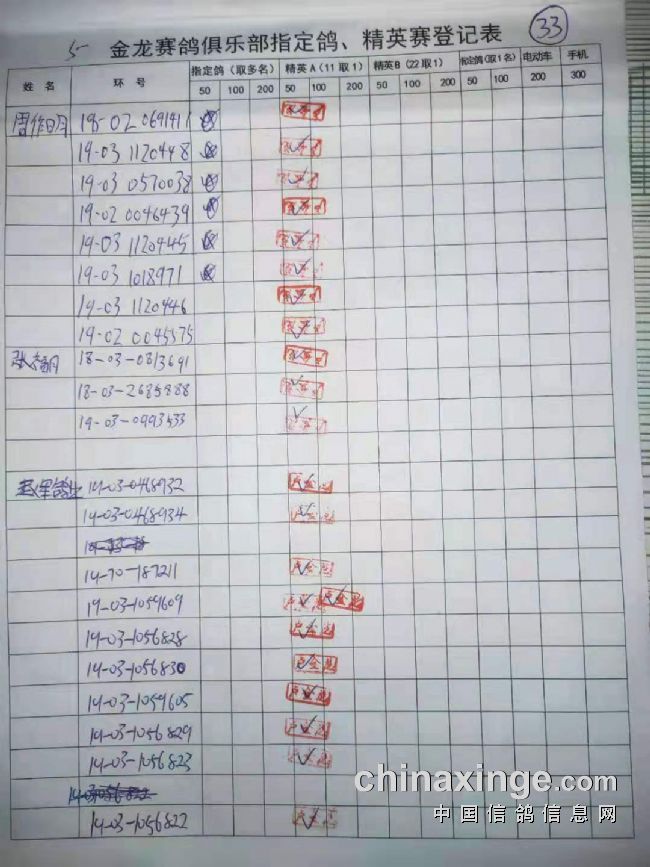 5-
金龙赛鸽俱乐部指定鸽、精英赛登记表
33
姓 名 环 号 指定鸽（取多名） 精英A（11取1） 精英B（22取1） 指定鸽（取1名） 电动车 手机
50 100 200 50 100 200 50 100 200 50 100 200 300
18-02 0691411
19-03 1120448
19-03 0570038
19-02 0046439
19-03 1120445
19-03 1018971
19-03 1120446
19-02 0045575
18-03-0813691
18-03-2685888
19-03-0993533
19-03-0468932
19-03-0468934
19-70-187211
19-03-1059609
19-03-1056828
19-03-1056830
19-03-1059605
19-03-1056829
19-03-1056823
19-03-1056822
chinaxinge.com
中国信鸽信息网